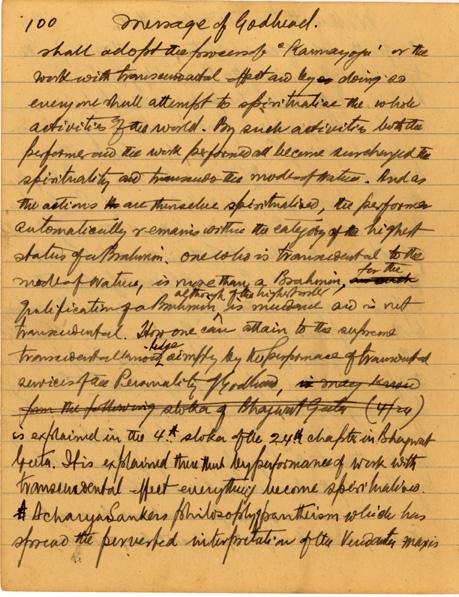 100 Message of Godhead.
shall adopt the process of "Karmayoga" or the
work with transcendental effect and by doing as
everyone shall attempt to spiritualise the whole
activities of the world. By such activities both the
performer and the work performed all become surcharged the
spirituality and transcends the mode of Nature. And as
the actions are themselves spiritualised, the performer
automatically remains within the category of the highest
status of a Brahmin. One who is transcendental to the
mode of Nature, is more than a Brahmin, for the
qualification of a Brahmin although of the highest order is mundane and is not
transcendental. How one can attain to the supreme
transcendental most simply by the performance of transcendental
service of the Personality of Godhead, is may
from the following sloka of Bhagwat Geeta (4/24)
is explained in the 4th sloka of the 24th chapter in Bhagwat
Geeta. It is explained there that by performance of work with
transcendental effect everything become spiritualised.
Acharya Sankers philosophy pantheism which has
spread the perverted interpretation of the Vedanta maxis